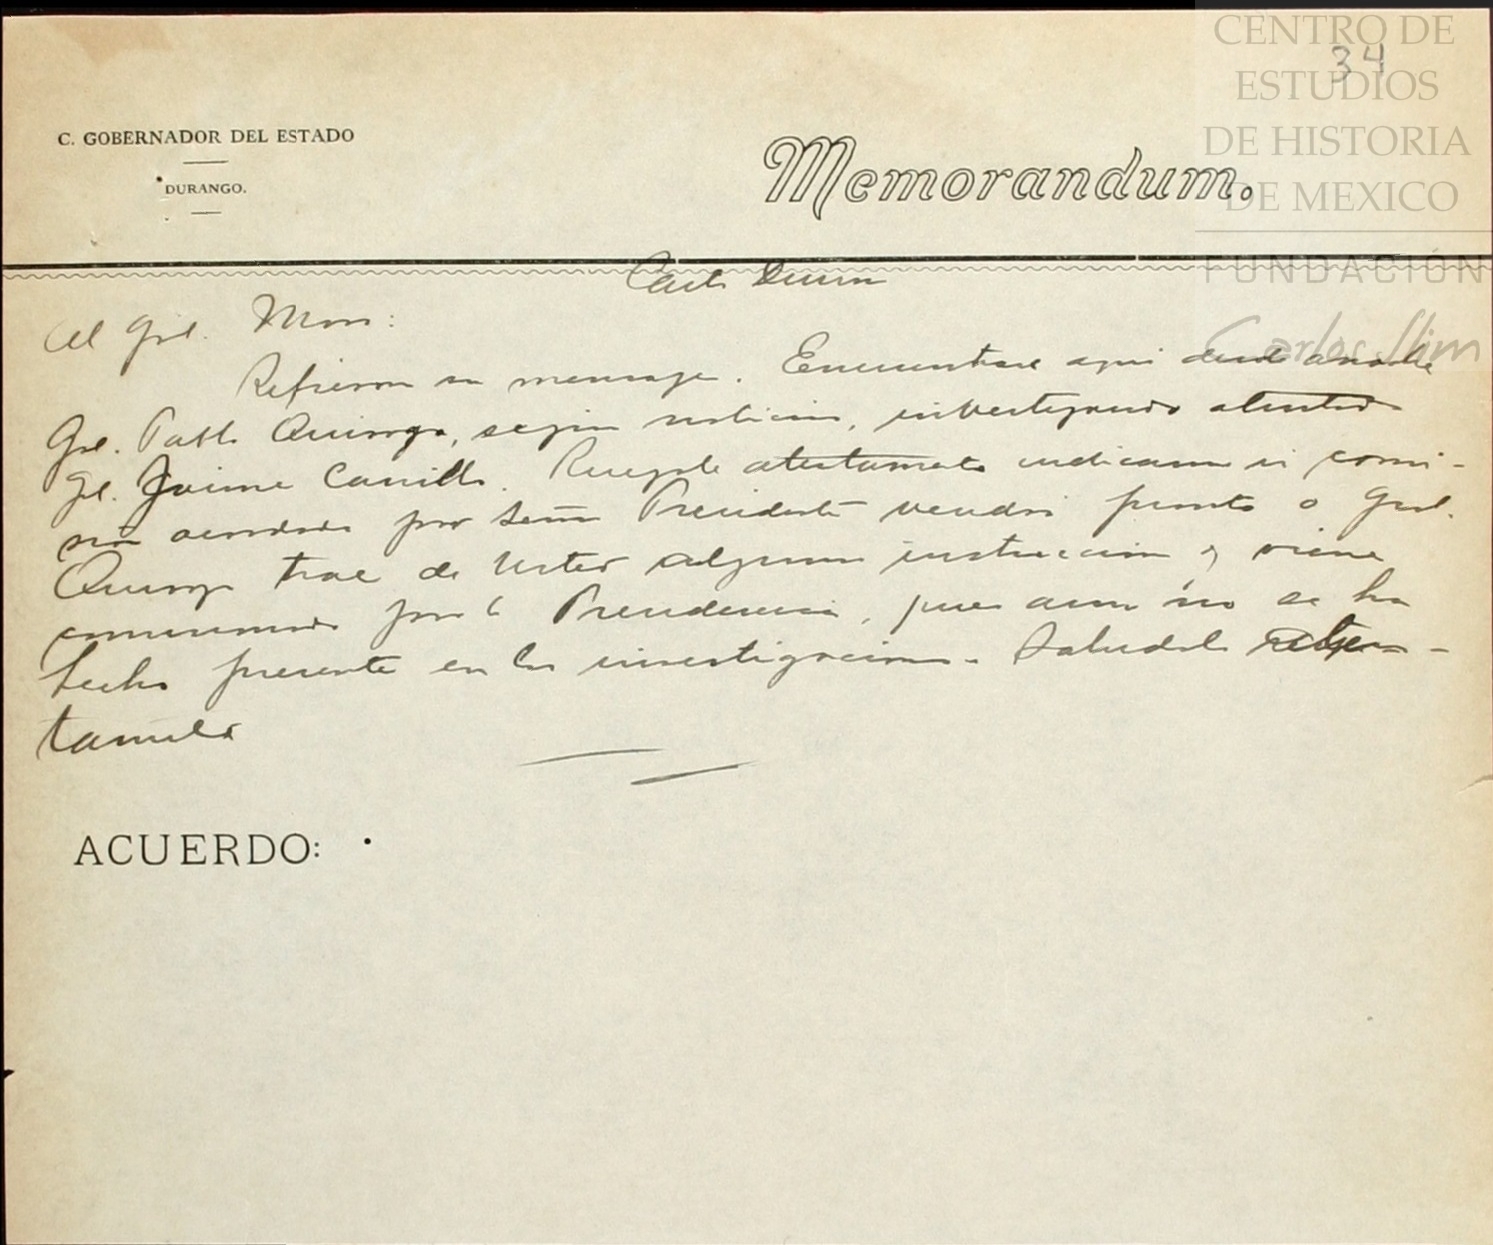 CENTRO DE
ESTUDIOS
DE HISTORIA
DE MEXICO
FUNDACIÓN
Carlos Slim
34
C. GOBERNADOR DEL ESTADO
DURANGO.
Memorandum.
Al Gral.
Refierome su mensaje. Encuentrase aqui desde anoche
Gral. Pablo Quiroga, según noticias, investigando atentado
Gral. Jaime Carrillo. Ruegole atentamente indicarme si comi-
sión acordada por Señor Presidente vendrá pronto o Gral.
Quiroga trae de Usted alguna instrucción y viene
comisionado por la Presidencia, pues aun no se ha
hecho presente en las investigaciones. Saludole aten-
tamente
ACUERDO: